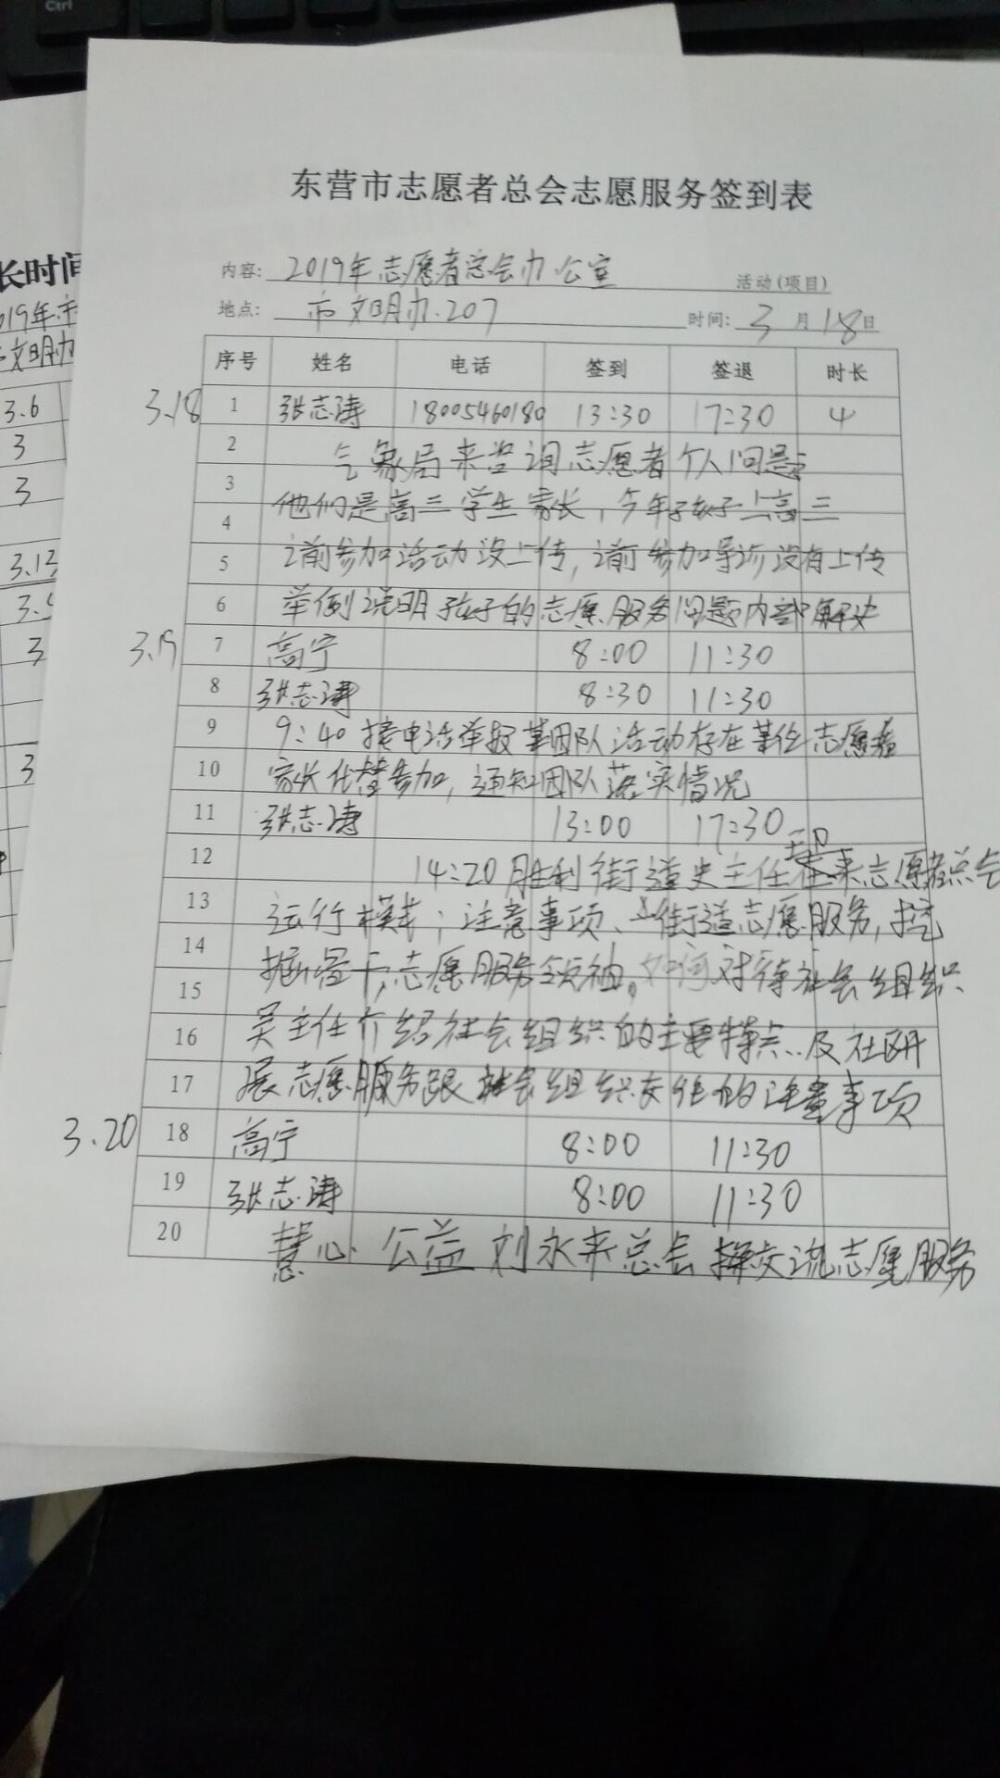 Ctrl
东营市志愿者总会志愿服务签到表
内容: 2019年志愿者总会办公室 活动(项目)
地点: 市文明办.207 时间: 3月18日
序号 姓名 电话 签到 签退 时长
3.18 1 张志涛 18005460180 13:30 17:30 4
2 气象局来咨询志愿者个人问题
3 他们是高三学生家长,今年孩子上高三
4
5 之前参加活动没上传,之前参加导诊没有上传
6 举例说明孩子的志愿服务问题内部解决
3.19 7 高宁 8:00 11:30
8 张志涛 8:30 11:30
9 9:40 接电话举报某团队活动存在某位志愿者
10 家长代替参加,通知团队落实情况
11 张志涛 13:00 17:30
12 14:20 胜利街道史主任 来志愿者总会
13 运行模式;注意事项、街道志愿服务,挖
14 掘骨干,志愿服务领袖。如何对待社会组织
15
16 吴主任介绍社会组织的主要特点..及社区开
17 展志愿服务跟社会组织合作的注意事项
3.20 18 高宁 8:00 11:30
19 张志涛 8:00 11:30
20 慧心公益刘永来总会 交流志愿服务
长时间
019年市
文明办
3.6
3
3
3.13
3
3